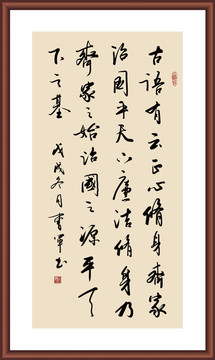 古语有云正心修身齐家
治国平天下廉洁修身乃
齐家之始治國之源平天
下之基
戊戌冬月书军书